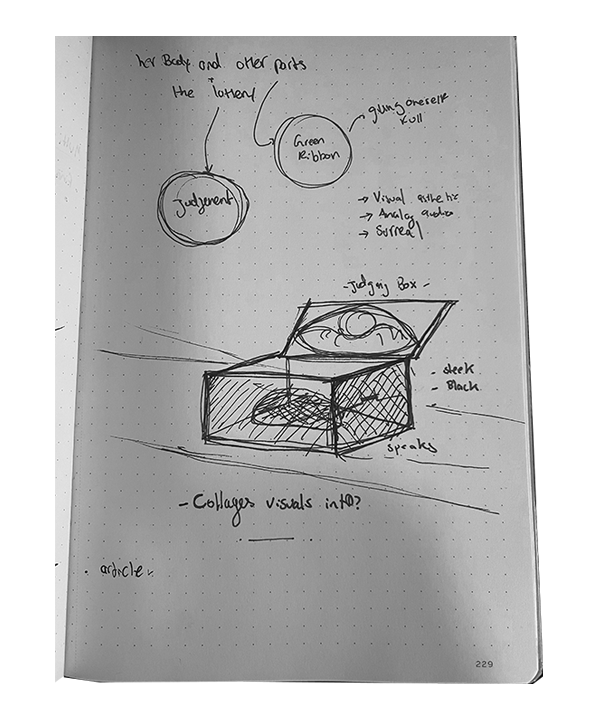 her Body and other parts
the lottery
Green
Ribbon
giving oneself
full
Judgement
→ Visual
→ Analog
→ Surreal
- Judging Box -
- sleek
- Black
speaks
- Collages visuals into?
. article
229